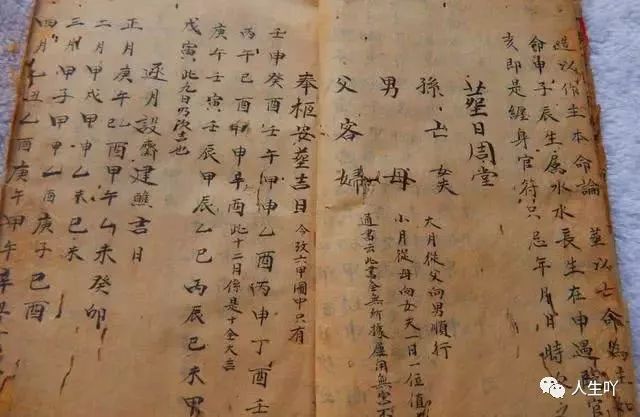 造以作主本命論 葬以亡命為主
命申子辰生屬水水長生在申遇臨官
亥即是纏身官符只忌年月日時
葬日周堂
孫 亡 女夫
男 母
父 客 婦
大月從父向男順行
小月從母向女夫一日一位值
通書云此書全無所據應用無害不
奉柩安葬吉日 今攷六甲圖中只有
壬申癸酉壬午甲申乙酉丙申丁酉壬
丙午己酉庚申辛酉此十二日係是十全大吉
庚午壬寅壬辰甲辰乙巳丙辰己未甲
戊寅此九日乃次吉也
逐月設齋建醮吉日
正月庚午己酉甲午乙未癸卯
二月甲戌甲申乙未己未
三月甲子甲乙酉庚子己酉
四月乙丑乙酉庚午甲午辛丑
人生吖